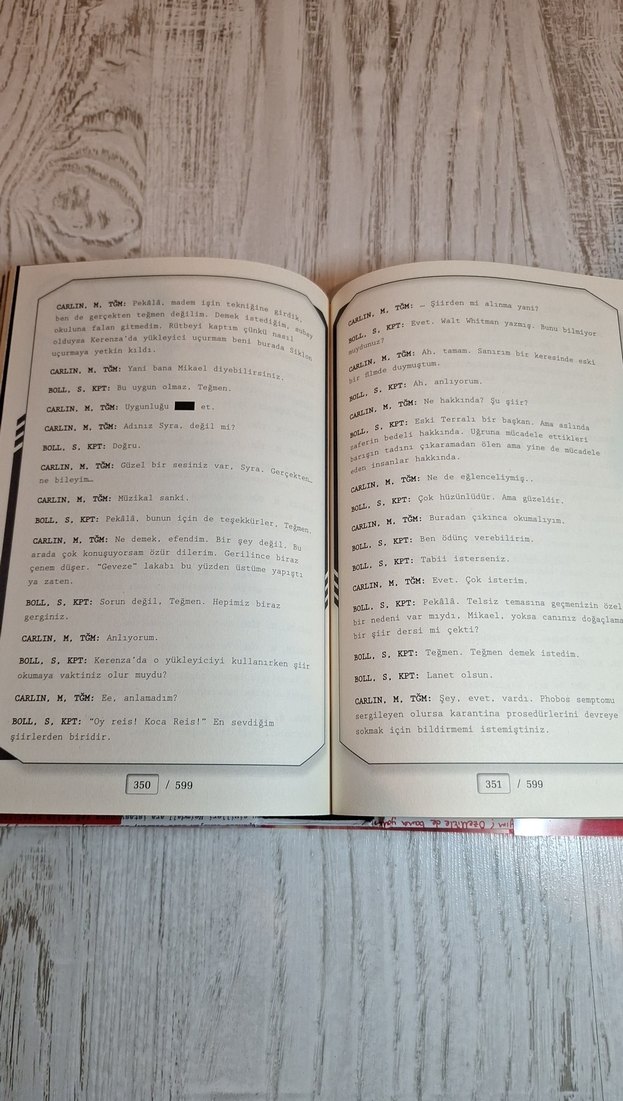 CARLIN, M, TĞM: Pekâlâ, madem işin tekniğine girdik,
ben de gerçekten teğmen değilim. Demek istediğim, subay
okuluna falan gitmedim. Rütbeyi kaptım çünkü nasıl
olduysa Kerenza'da yükleyici uçurmam beni burada Siklon
uçurmaya yetkin kıldı.
CARLIN, M, TĞM: Yani bana Mikael diyebilirsiniz.
BOLL, S, KPT: Bu uygun olmaz, Teğmen.
CARLIN, M, TĞM: Uygunluğu et.
CARLIN, M, TĞM: Adınız Syra, değil mi?
BOLL, S, KPT: Doğru.
CARLIN, M, TĞM: Güzel bir sesiniz var, Syra. Gerçekten…
ne bileyim…
CARLIN, M, TĞM: Müzikal sanki.
BOLL, S, KPT: Pekâlâ, bunun için de teşekkürler, Teğmen.
CARLIN, M, TĞM: Ne demek, efendim. Bir şey değil. Bu
arada çok konuşuyorsam özür dilerim. Gerilince biraz
çenem düşer. "Geveze" lakabı bu yüzden üstüme yapıştı
ya zaten.
BOLL, S, KPT: Sorun değil, Teğmen. Hepimiz biraz
gerginiz.
CARLIN, M, TĞM: Anlıyorum.
BOLL, S, KPT: Kerenza'da o yükleyiciyi kullanırken şiir
okumaya vaktiniz olur muydu?
CARLIN, M, TĞM: Ee, anlamadım?
BOLL, S, KPT: "Oy reis! Koca Reis!" En sevdiğim
şiirlerden biridir.
350 / 599
CARLIN, M, TĞM: … Şiirden mi alınma yani?
BOLL, S, KPT: Evet. Walt Whitman yazmış. Bunu bilmiyor
muydunuz?
CARLIN, M, TĞM: Ah, tamam. Sanırım bir keresinde eski
bir filmde duymuştum.
BOLL, S, KPT: Ah, anlıyorum.
CARLIN, M, TĞM: Ne hakkında? Şu şiir?
BOLL, S, KPT: Eski Terralı bir başkan. Ama aslında
zaferin bedeli hakkında. Uğruna mücadele ettikleri
barışın tadını çıkaramadan ölen ama yine de mücadele
eden insanlar hakkında.
CARLIN, M, TĞM: Ne de eğlenceliymiş..
BOLL, S, KPT: Çok hüzünlüdür. Ama güzeldir.
CARLIN, M, TĞM: Buradan çıkınca okumalıyım.
BOLL, S, KPT: Ben ödünç verebilirim.
BOLL, S, KPT: Tabii isterseniz.
CARLIN, M, TĞM: Evet. Çok isterim.
BOLL, S, KPT: Pekâlâ. Telsiz temasına geçmenizin özel
bir nedeni var mıydı, Mikael, yoksa canınız doğaçlama
bir şiir dersi mi çekti?
BOLL, S, KPT: Teğmen. Teğmen demek istedim.
BOLL, S, KPT: Lanet olsun.
CARLIN, M, TĞM: Şey, evet, vardı. Phobos semptomu
sergileyen olursa karantina prosedürlerini devreye
sokmak için bildirmemi istemiştiniz.
351 / 599